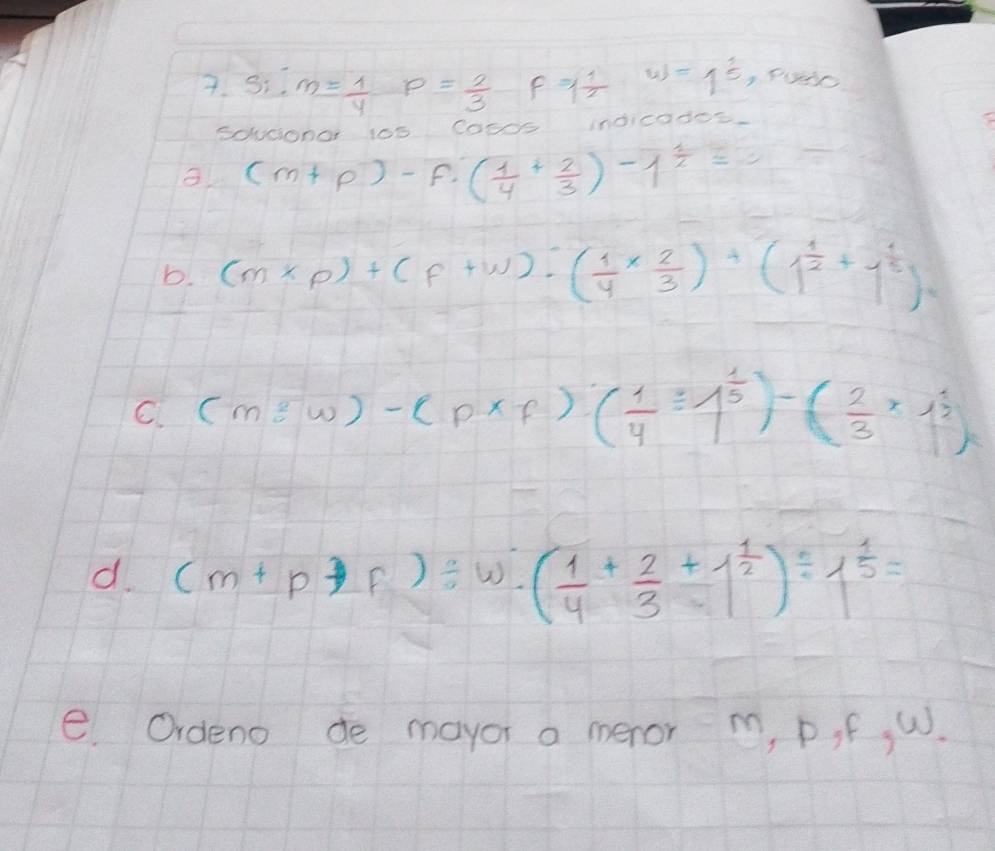 7. Si: m = 1/4 p = 2/3 f = 1 1/2 w = 1 1/5, puedo
solucionar los casos indicados-
a. (m + p) - f. (1/4 + 2/3) - 1 1/2 = -
b. (m × p) + (f + w). (1/4 × 2/3) + (1 1/2 + 1 1/5)
c. (m ÷ w) - (p × f) (1/4 ÷ 1 1/5) - (2/3 × 1 1/2)
d. (m + p + f) ÷ w. (1/4 + 2/3 + 1 1/2) ÷ 1 1/5 =
e. Ordeno de mayor a menor m, p, f, w.